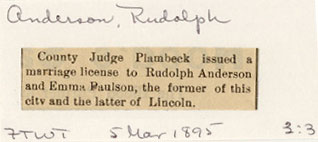 Anderson, Rudolph
County Judge Plambeck issued a
marriage license to Rudolph Anderson
and Emma Paulson, the former of this
city and the latter of Lincoln.
FTWT 5 Mar 1895 3:3